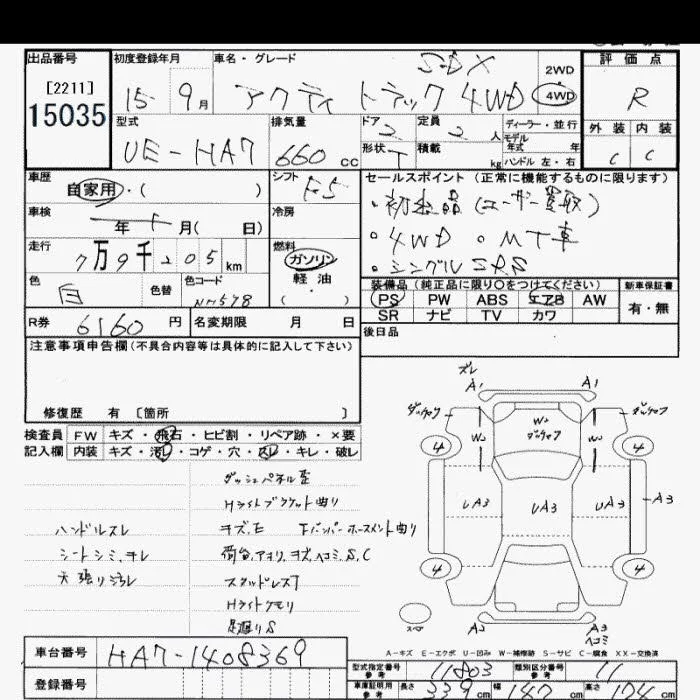 出品番号
[2211]
15035
初度登録年月
15 9月
車名・グレード
SDX
アクティ トラック 4WD
2WD
4WD
評価点
R
型式
UE-HA7
排気量
660cc
ドア 2
定員 2人
ディーラー・並行
モデル年式 年
ハンドル 左・右
形状 T
積載 kg
外装 内装
C C
車歴
自家用・( )
シフト F5
セールスポイント (正常に機能するものに限ります)
・初出品(ユーザー買取)
・4WD ・MT車
・シングルSRS
車検
年 月( 日)
冷房
走行
7万9千205km
燃料
ガソリン
軽油
・( )
色
白
色替
色コード
NH578
装備品(純正品に限り〇をつけてください)
PS PW ABS エアB AW
SR ナビ TV カワ
新車保証書
有・無
R券 6160円
名変期限 月 日
後日品
注意事項申告欄(不具合内容等は具体的に記入して下さい)
修復歴 有 〔箇所 〕
検査員記入欄
FW キズ・飛石・ヒビ割・リペア跡・×要
内装 キズ・汚レ・コゲ・穴・スレ・キレ・破レ
ダッシュパネル歪
Hライトブラケット曲り
キズ、E
下バンパーホースメント曲り
ハンドルスレ
シートシミ、ヨレ
天張り汚レ
荷台、アオリ、キズ、ヘコミ、S、C
スタッドレス
Hライトクモリ
足廻りS
ズレ
A1 A1
W2 W2 W2
4 4
UA3 UA3 UA3 A3
4 4
A2 A3
ヘコミ
A-キズ E-エクボ U-凹み W-補修跡 S-サビ C-腐食 XX-交換済
車台番号
HA7-1408369
登録番号
型式指定番号 参考 11803
類別区分番号 参考 11
車庫証明用 参考 長さ 339cm 幅 cm 高さ cm